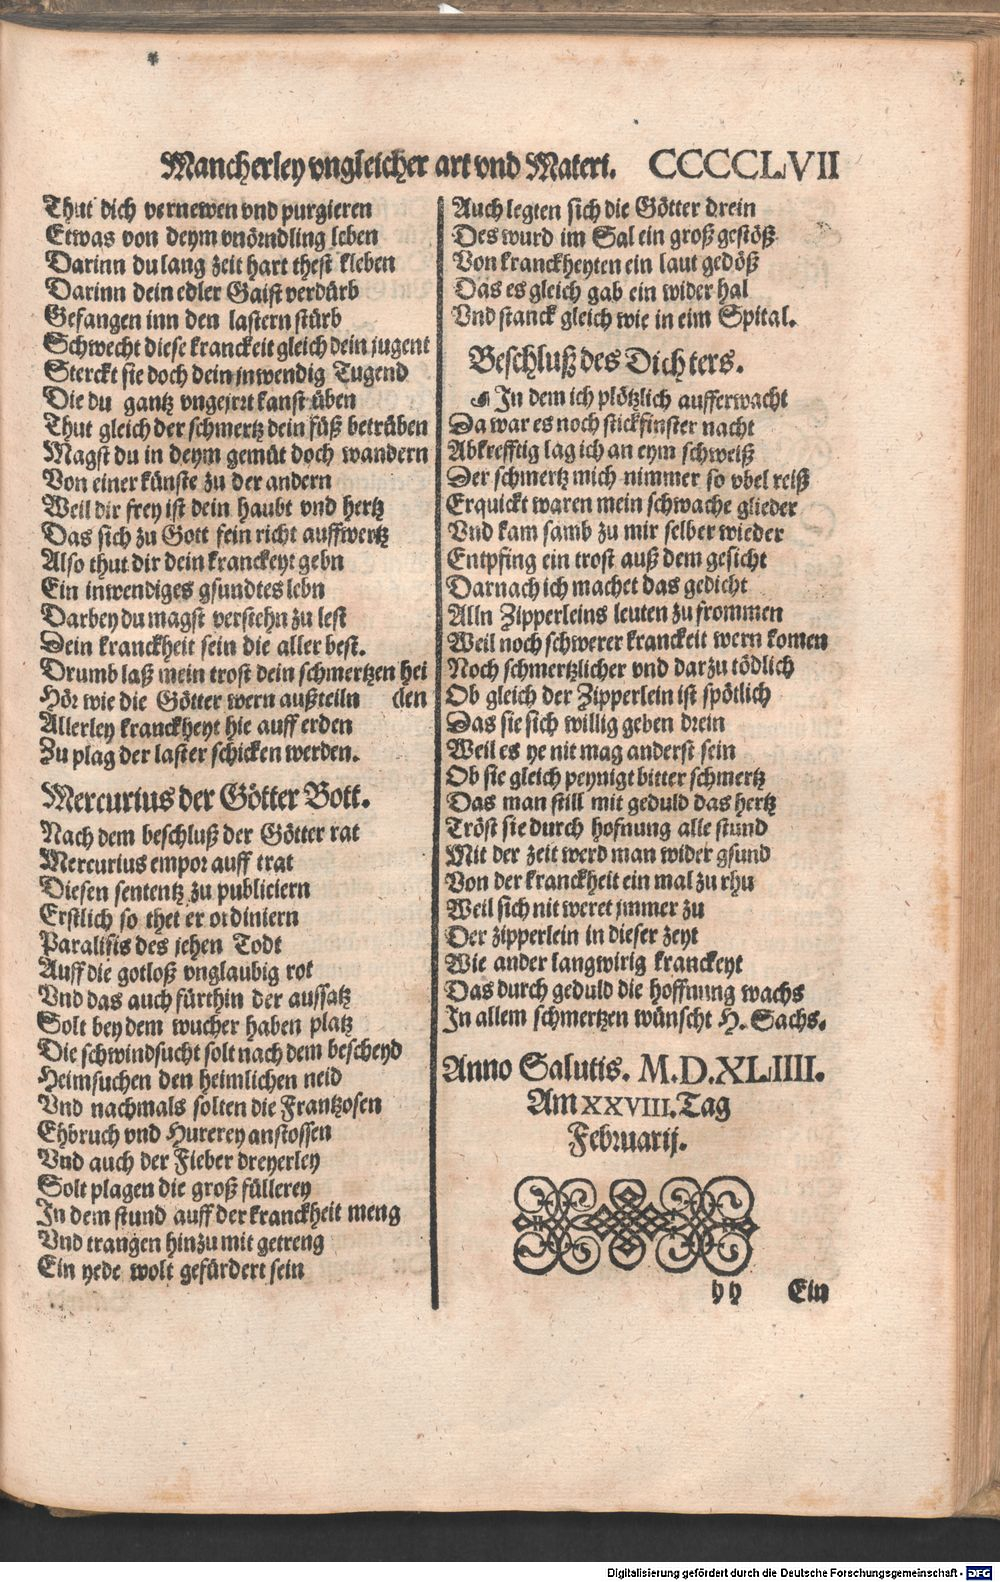 Mancherley vngleicher art vnd Materi. CCCCCLVII
Thut dich vernewen vnd purgieren
Etwas von deym vnörndling leben
Darinn du lang zeit hart thest kleben
Darinn dein edler Gaist verdürb
Gefangen inn den lastern stürb
Schwecht diese kranckeit gleich dein jugent
Sterckt sie doch dein jnwendig Tugend
Die du gantz vngejrrt kanst üben
Thut gleich der schmertz dein füß betrüben
Magst du in deym gemüt doch wandern
Von einer künste zu der andern
Weil dir frey ist dein haubt vnd hertz
Das sich zu Gott fein richt auffwertz
Also thut dir dein kranckeyt gebn
Ein inwendiges gsundtes lebn
Darbey du magst verstehn zu lest
Dein kranckheit sein die aller best.
Drumb laß mein trost dein schmertzen hei
Hör wie die Götter wern außteiln den
Allerley kranckheyt hie auff erden
Zu plag der laster schicken werden.
Mercurius der Götter Bott.
Nach dem beschluß der Götter rat
Mercurius empor auff trat
Diesen sententz zu publiciern
Erstlich so thet er ordiniern
Paralisis des jehen Todt
Auff die gotloß vnglaubig rot
Vnd das auch fürthin der aussatz
Solt bey dem wucher haben platz
Die schwindsucht solt nach dem bescheyd
Heimsuchen den heimlichen neid
Vnd nachmals solten die Frantzosen
Ehbruch vnd Hurerey anstossen
Vnd auch der Fieber dreyerley
Solt plagen die groß füllerey
In dem stund auff der kranckheit meng
Vnd trangen hinzu mit getreng
Ein yede wolt gefürdert sein
Auch legten sich die Götter drein
Des wurd im Sal ein groß gestöß
Von kranckheyten ein laut gedöß
Das es gleich gab ein wider hal
Vnd stanck gleich wie in eim Spital.
Beschluß des Dichters.
☙ In dem ich plötzlich aufferwacht
Da war es noch stickfinster nacht
Abkrefftig lag ich an eym schweiß
Der schmertz mich nimmer so vbel reiß
Erquickt waren mein schwache glieder
Vnd kam samb zu mir selber wieder
Entpfing ein trost auß dem gesicht
Darnach ich machet das gedicht
Alln Zipperleins leuten zu frommen
Weil noch schwerer kranckeit wern komen
Noch schmertzlicher vnd darzu tödlich
Ob gleich der Zipperlein ist spötlich
Das sie sich willig geben drein
Weil es ye nit mag anderst sein
Ob sie gleich peynigt bitter schmertz
Das man still mit geduld das hertz
Tröst sie durch hofnung alle stund
Mit der zeit werd man wider gsund
Von der kranckheit ein mal zu rhu
Weil sich nit weret jmmer zu
Der zipperlein in dieser zeyt
Wie ander langwirig kranckeyt
Das durch geduld die hoffnung wachs
In allem schmertzen wünscht H. Sachs.
Anno Salutis. M.D.XLIIII.
Am XXVIII. Tag
Februarij.
yy Ein
Digitalisierung gefördert durch die Deutsche Forschungsgemeinschaft - DFG